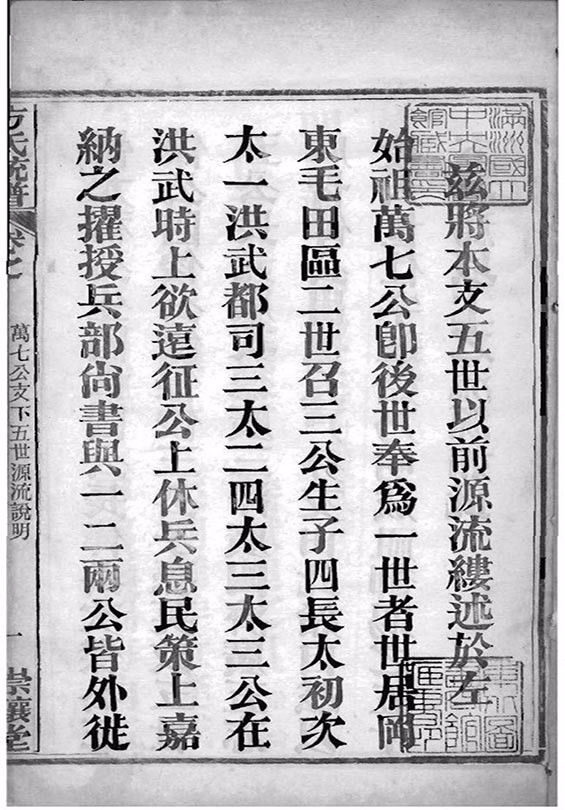 茲將本支五世以前源流縷述於左
始祖萬七公卽後世奉爲一世者世居岡
東毛田區二世召三公生子四長太初次
太一洪武都司三太二四太三太三公在
洪武時上欲遠征公上休兵息民策上嘉
納之擢授兵部尙書與一二兩公皆外徙
方氏統譜
卷七
萬七公支下五世源流說明
一
崇讓堂
滿洲國立
中央圖書
館藏書